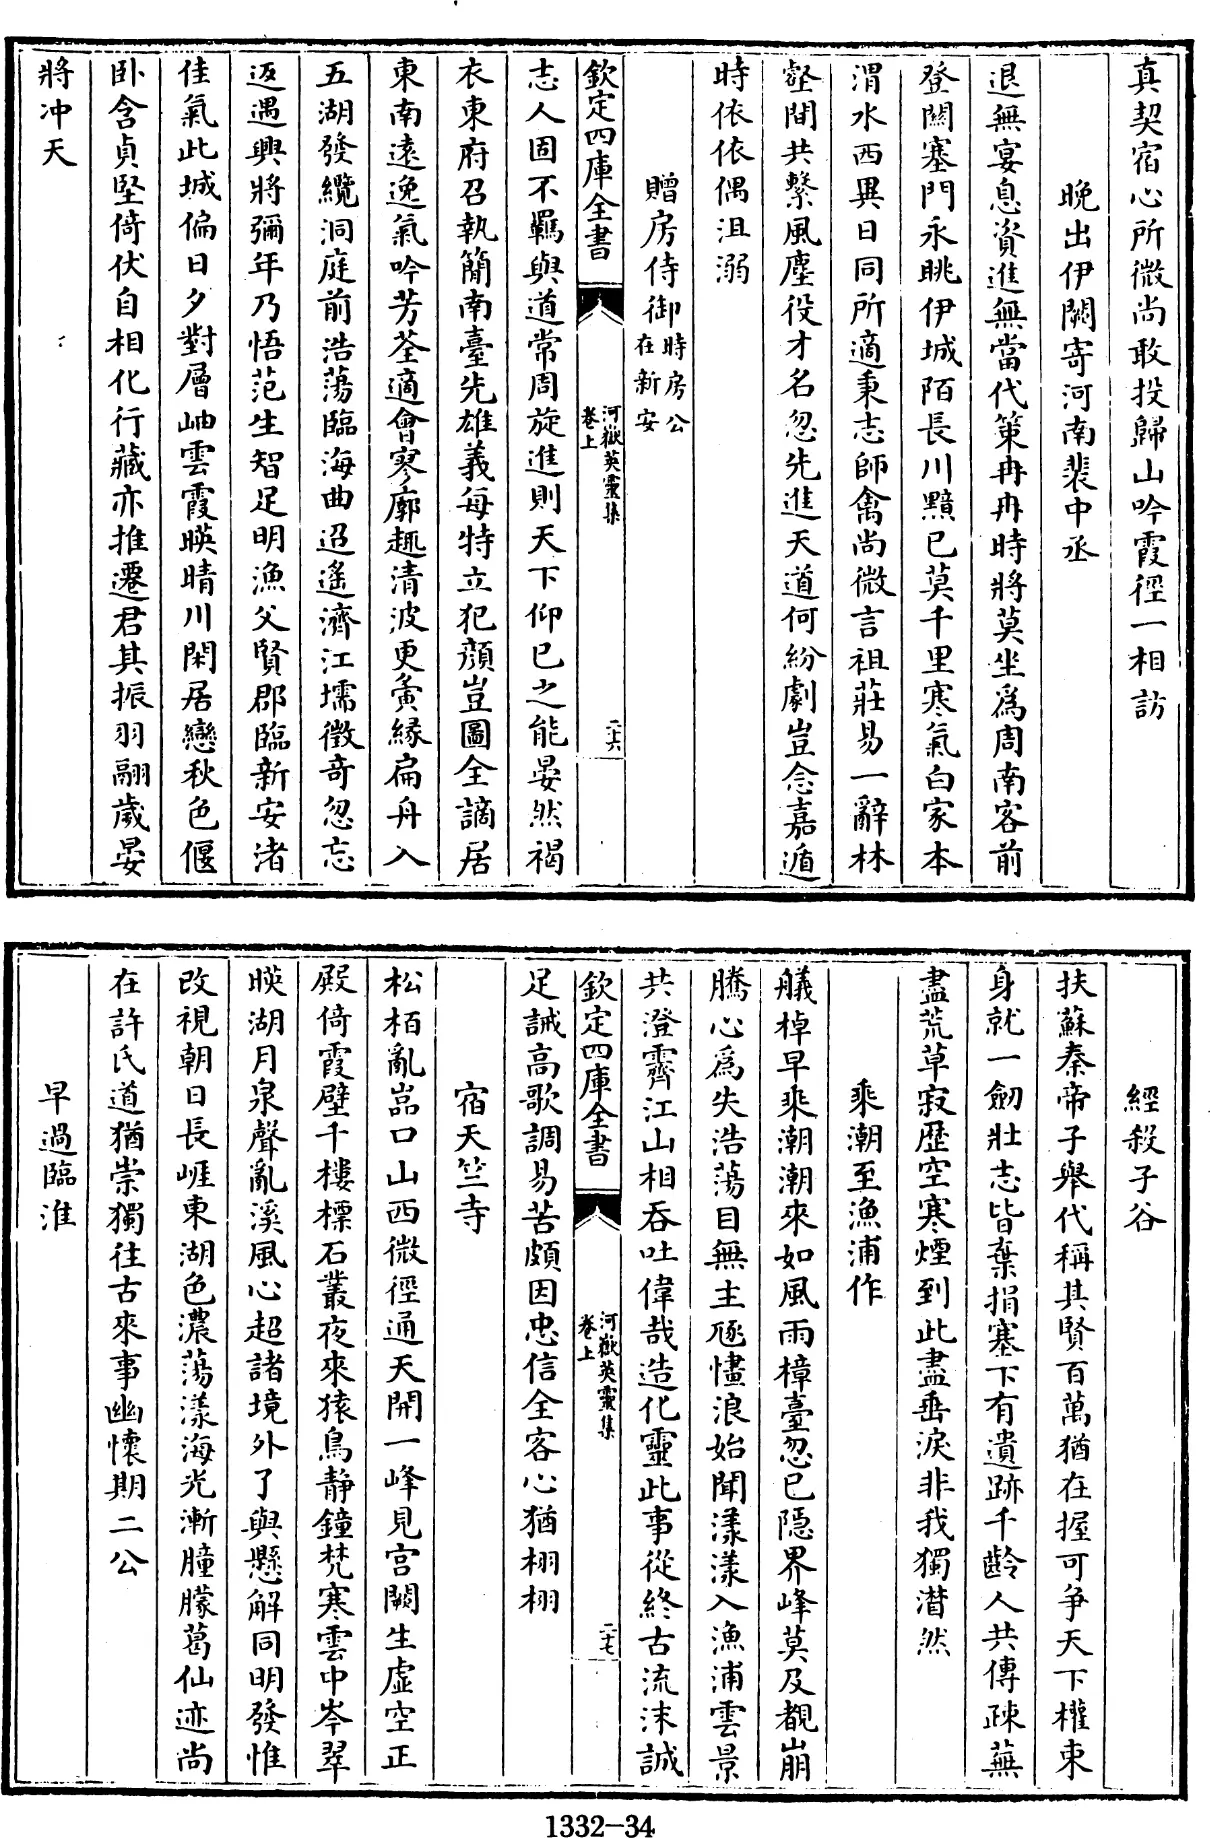 真契宿心所微尚敢投歸山吟霞徑一相訪
晚出伊闕寄河南裴中丞
退無宴息資進無當代策冉冉時將莫坐爲周南客前
登闕塞門永眺伊城陌長川黯已莫千里寒氣白家本
渭水西異日同所適秉志師禽尚微言祖莊易一辭林
壑間共繫風塵役才名忽先進天道何紛劇豈念嘉遁
時依依偶沮溺
贈房侍御時房公在新安
欽定四庫全書
河嶽英靈集
卷上
二六
志人固不羈與道常周旋進則天下仰已之能晏然褐
衣東府召執簡南臺先雄義每特立犯顔豈圖全謫居
東南遠逸氣吟芳荃適會寥廓趣清波更夤緣扁舟入
五湖發纜洞庭前浩蕩臨海曲迢遙濟江壖徵奇忽忘
返遇興將彌年乃悟范生智足明漁父賢郡臨新安渚
佳氣此城偏日夕對層岫雲霞暎晴川閑居戀秋色偃
卧含貞堅倚伏自相化行藏亦推遷君其振羽翮歲晏
將冲天
經殺子谷
扶蘇秦帝子舉代稱其賢百萬猶在握可争天下權束
身就一劒壯志皆棄捐塞下有遺跡千齡人共傳疎蕪
盡荒草寂歴空寒煙到此盡垂淚非我獨潸然
乘潮至漁浦作
艤棹早乘潮潮來如風雨樟臺忽已隠界峰莫及覩崩
騰心爲失浩蕩目無主豗㦎浪始聞漾漾入漁浦雲景
共澄霽江山相吞吐偉哉造化靈此事從終古流沫誠
欽定四庫全書
河嶽英靈集
卷上
二七
足誡高歌調易苦頗因忠信全客心猶栩栩
宿天竺寺
松栢亂嵓口山西微徑通天開一峰見宫闕生虛空正
殿倚霞壁千樓標石叢夜來猿鳥静鐘梵寒雲中岑翠
暎湖月泉聲亂溪風心超諸境外了與懸解同明發惟
改視朝日長崕東湖色濃蕩漾海光漸朣朦葛仙迹尚
在許氏道猶崇獨往古來事幽懷期二公
早過臨淮
1332-34